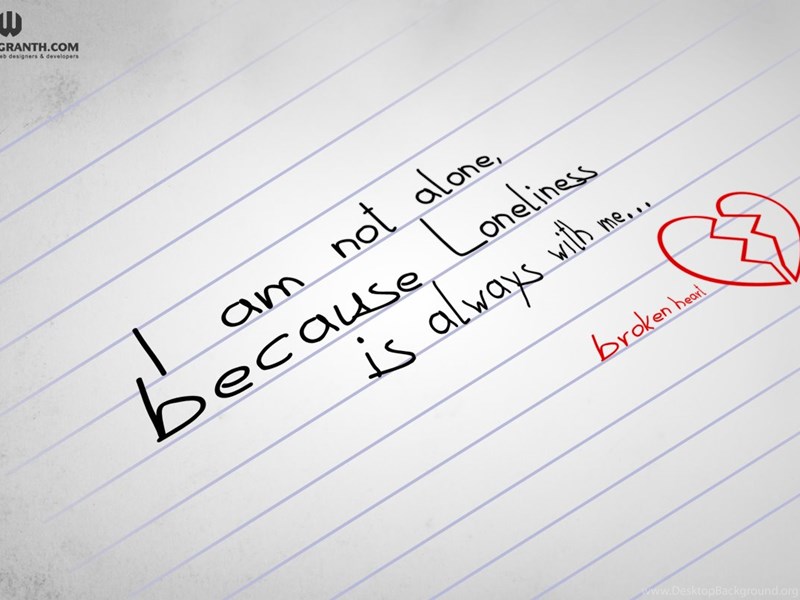 W
GRANTH.COM
eb designers & developers
I am not alone,
because Loneliness
is always with me...
broken heart
www.DesktopBackground.org